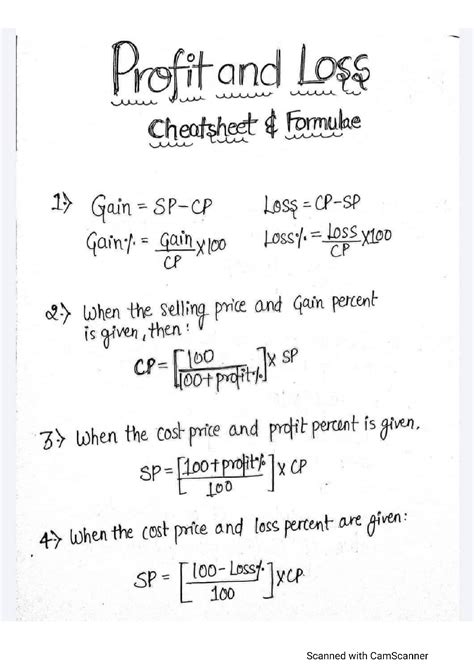 Profit and Loss
Cheatsheet & Formulae
1) Gain = SP-CP Loss = CP-SP
Gain% = Gain/CP X100 Loss% = Loss/CP X100
2) When the selling price and Gain percent
is given, then:
CP = [100/100+profit%] X SP
3) When the cost price and profit percent is given.
SP = [100+profit%/100] X CP
4) When the cost price and loss percent are given:
SP = [100-Loss%/100] X CP
Scanned with CamScanner